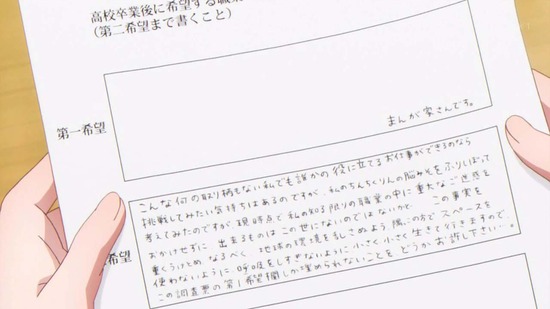 高校卒業後に希望する職業
(第二希望まで書くこと)
第一希望
まんが家さんです。
希望
こんな何の取り柄もない私でも誰かの役に立てるお仕事ができるのなら
挑戦してみたい気持ちはあるのですが、私のちんちくりんの脳みそをふりしぼって
考えてみたのですが、現時点で私の知る限りの職業の中に重大なご迷惑を
おかけせずに 出来るものはこの世にないのではないかと… この事実を
重くうけとめ なるべく 地球の環境を乱しこめよう、隅の方で スペースを
使わないように、呼吸をしすぎないように小さく小さく生きて行きますので、
この調査票の第1希望欄しか埋められないことを どうかお許し下さい…。